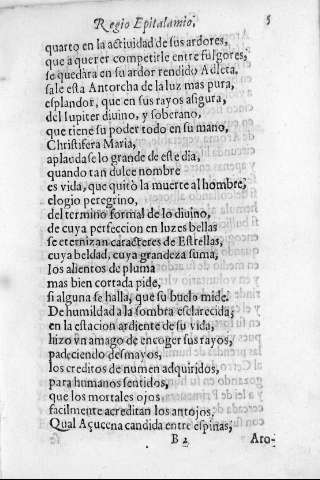 Regio Epitalamio, 5
quarto en la actiuidad de sus ardores,
que a querer competirle entre fulgores,
se quedara en su ardor rendido Adleta,
sale esta Antorcha de la luz mas pura,
esplandor, que en sus rayos asigura,
del Iupiter diuino, y soberano,
que tiene su poder todo en su mano,
Christifera Maria,
aplaoda se lo grande de este dia,
quando tan dulce nombre
es vida, que quitò la muerte al hombre,
elogio peregrino,
del termino formal de lo diuino,
de cuya perfeccion en luzes bellas
se eternizan caracteres de Estrellas,
cuya beldad, cuya grandeza suma,
los alientos de pluma
mas bien cortada pide,
si alguna se halla, que su buelo mide.
De humildad a la sombra esclarecida,
en la estacion ardiente de su vida,
hizo vn amago de encoger sus rayos,
padeciendo desmayos,
los creditos de numen adquiridos,
para humanos sentidos,
que los mortales ojos
facilmente acreditan los antojos.
Qual Açucena candida entre espinas,
B 2 Aro-